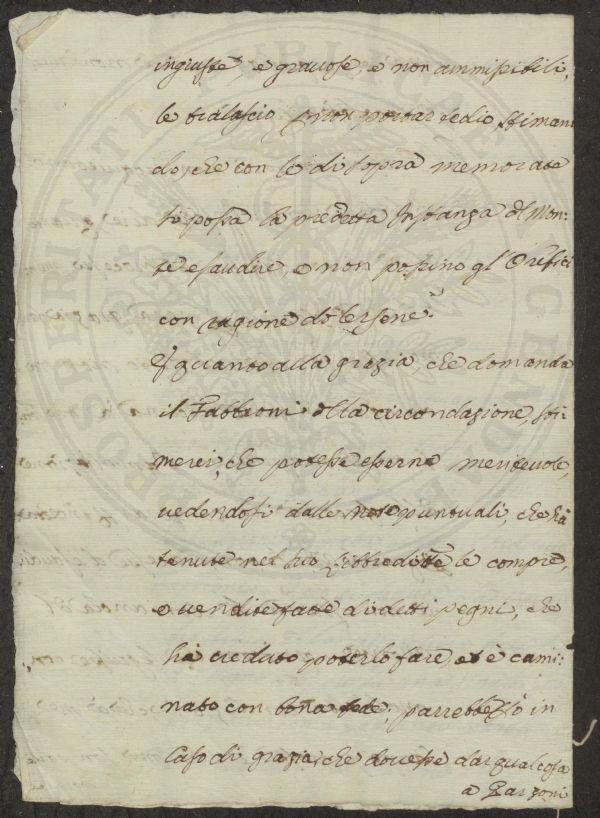 ingiuste e gravose, e non ammissibili,
le tralascio p non portar tedio stiman
do, che con le di sopra memorate
si possa la predetta Instanza di Mon-
te esaudire, e non possino gl'Orefici
con ragione dolersene.
E quanto alla grazia, che domanda
il Fabbroni della circondazione, sti-
merei, che potesse esserne meritevole,
vedendosi dalle note puntuali, che hà
tenute nel suo libbro di tt.e le compre,
e vendite fatte di detti pegni, che
hà creduto poterlo fare, et è cami-
nato con bona fede; parrebbe però in
caso di grazia, che dovesse dar qualcosa
a Garzoni
PROSPERITATI PUBLICAE AUGENDAE